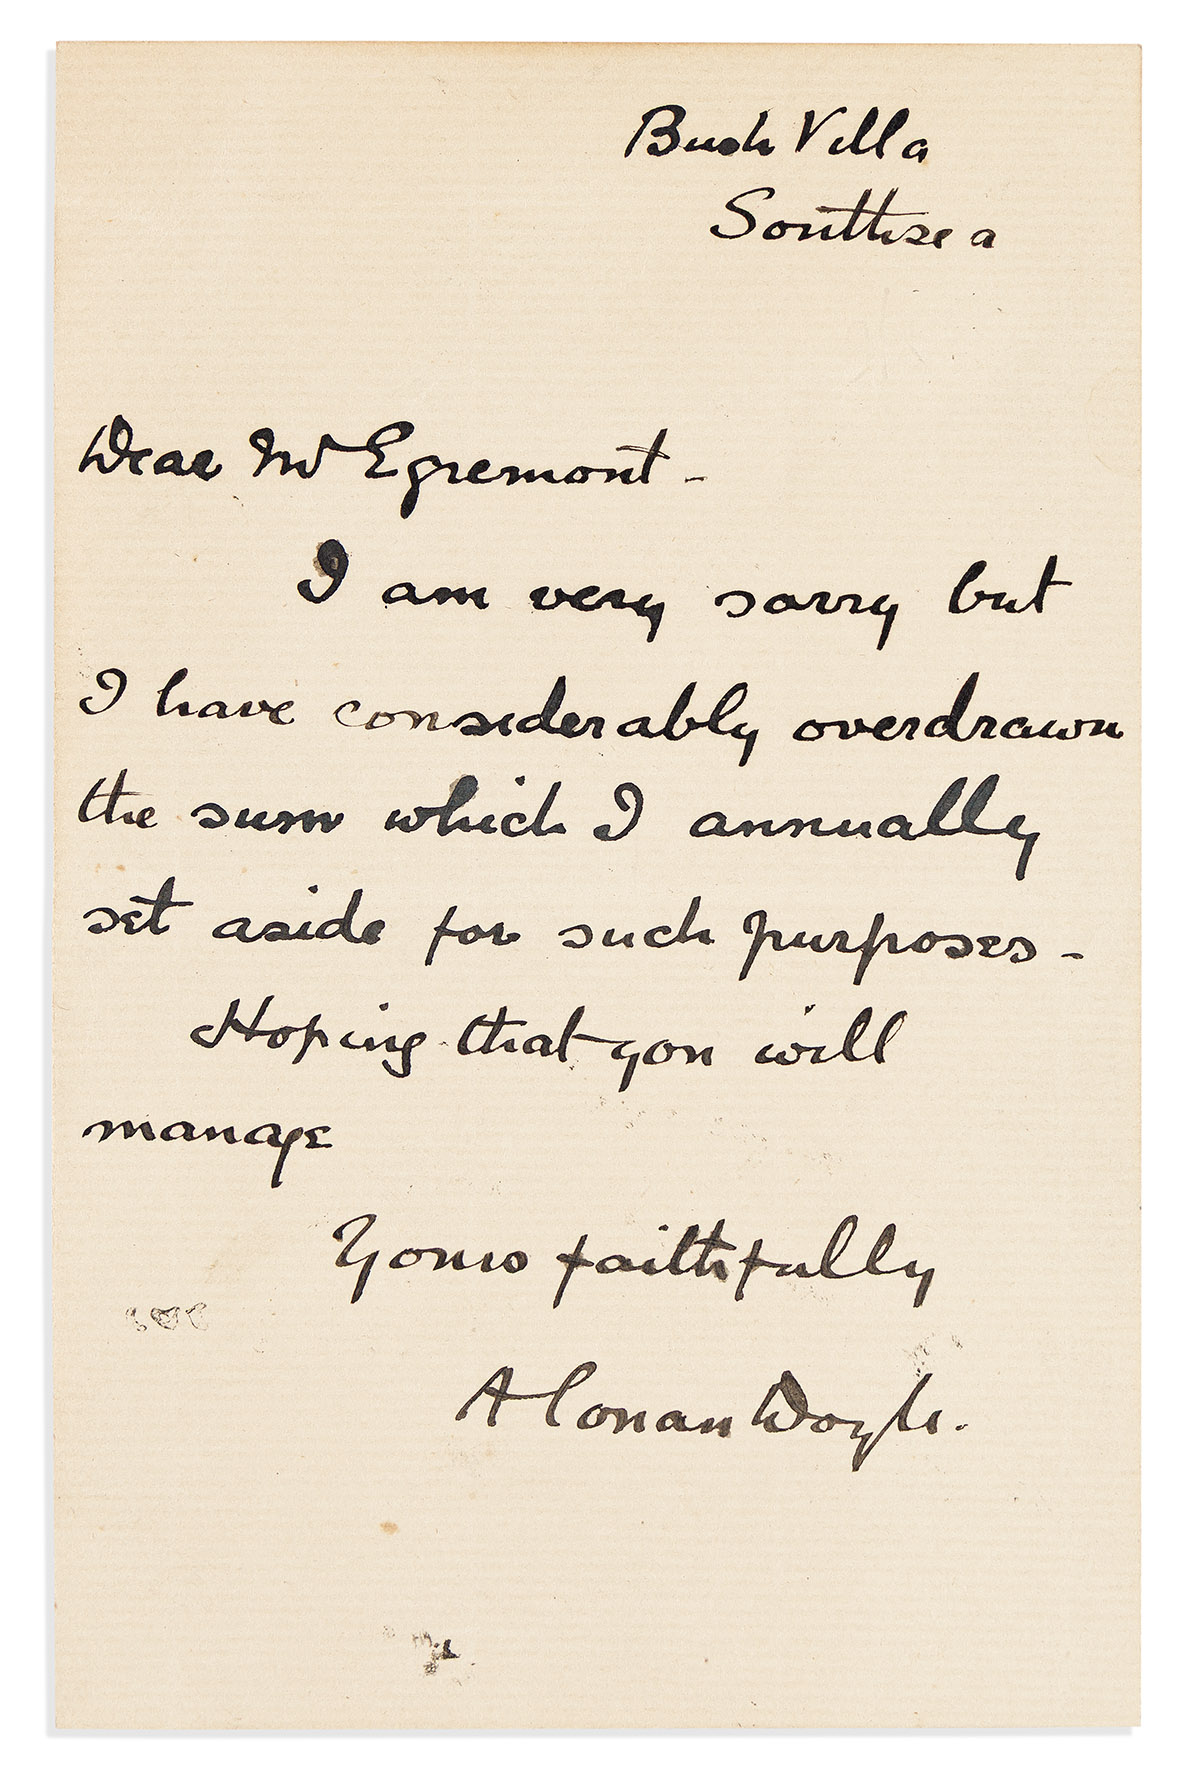 Bush Villa
Southsea
Dear Mr Egremont -
I am very sorry but
I have considerably overdrawn
the sum which I annually
set aside for such purposes -
Hoping that you will
manage
Yours faithfully
A Conan Doyle.